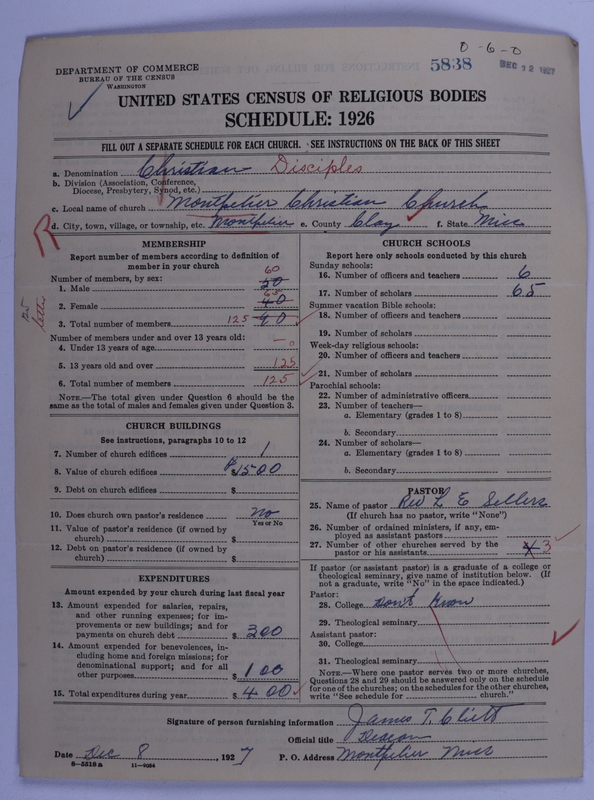 0-6-0
5838 DEC 12 1927
DEPARTMENT OF COMMERCE
BUREAU OF THE CENSUS
WASHINGTON
UNITED STATES CENSUS OF RELIGIOUS BODIES
SCHEDULE: 1926
FILL OUT A SEPARATE SCHEDULE FOR EACH CHURCH. SEE INSTRUCTIONS ON THE BACK OF THIS SHEET
a. Denomination Christian Disciples
b. Division (Association, Conference,
Diocese, Presbytery, Synod, etc.)
c. Local name of church Montpelier Christian Church
d. City, town, village, or township, etc. Montpelier e. County Clay f. State Miss
R
125 letter
MEMBERSHIP
Report number of members according to definition of
member in your church
Number of members, by sex: 60
1. Male 50
65
2. Female 40
3. Total number of members 125 90
Number of members under and over 13 years old:
4. Under 13 years of age - 0
5. 13 years old and over 125
6. Total number of members 125
NOTE.—The total given under Question 6 should be the
same as the total of males and females given under Question 3.
CHURCH BUILDINGS
See instructions, paragraphs 10 to 12
7. Number of church edifices 1
8. Value of church edifices $1500
9. Debt on church edifices $
10. Does church own pastor's residence No
Yes or No
11. Value of pastor's residence (if owned by
church) $
12. Debt on pastor's residence (if owned by
church) $
EXPENDITURES
Amount expended by your church during last fiscal year
13. Amount expended for salaries, repairs,
and other running expenses; for im-
provements or new buildings; and for
payments on church debt $ 300
14. Amount expended for benevolences, in-
cluding home and foreign missions; for
denominational support; and for all
other purposes $ 100
15. Total expenditures during year $ 400
CHURCH SCHOOLS
Report here only schools conducted by this church
Sunday schools:
16. Number of officers and teachers 6
17. Number of scholars 65
Summer vacation Bible schools:
18. Number of officers and teachers
19. Number of scholars
Week-day religious schools:
20. Number of officers and teachers
21. Number of scholars
Parochial schools:
22. Number of administrative officers
23. Number of teachers—
a. Elementary (grades 1 to 8)
b. Secondary
24. Number of scholars—
a. Elementary (grades 1 to 8)
b. Secondary
PASTOR
25. Name of pastor Rev L E Sellers
(If church has no pastor, write "None")
26. Number of ordained ministers, if any, em-
ployed as assistant pastors
27. Number of other churches served by the
pastor or his assistants 4 3
If pastor (or assistant pastor) is a graduate of a college or
theological seminary, give name of institution below. (If
not a graduate, write "No" in the space indicated.)
Pastor:
28. College Dont Know
29. Theological seminary
Assistant pastor:
30. College
31. Theological seminary
NOTE.—Where one pastor serves two or more churches,
Questions 28 and 29 should be answered only on the schedule
for one of the churches; on the schedules for the other churches,
write "See schedule for church."
Signature of person furnishing information James T. Cliett
Official title Deacon
Date Dec 8, 1927 P. O. Address Montpelier Miss
8-5518a 11-9084